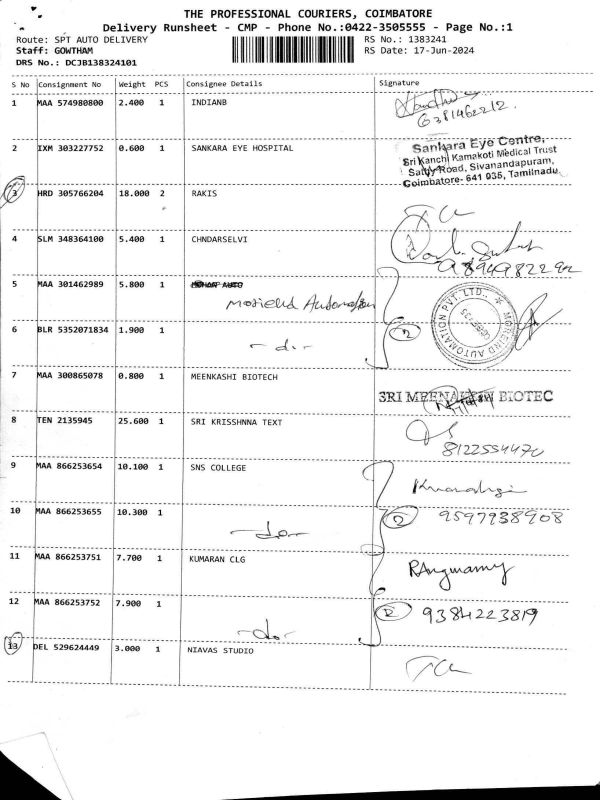 THE PROFESSIONAL COURIERS, COIMBATORE
Delivery Runsheet - CMP - Phone No.:0422-3505555 - Page No.:1
Route: SPT AUTO DELIVERY RS No.: 1383241
Staff: GOWTHAM RS Date: 17-Jun-2024
DRS No.: DCJB138324101
S No Consignment No Weight PCS Consignee Details Signature
1 MAA 574980800 2.400 1 INDIANB
6381462212.
2 IXM 303227752 0.600 1 SANKARA EYE HOSPITAL
Sankara Eye Centre,
Sri Kanchi Kamakoti Medical Trust
Sathy Road, Sivanandapuram,
Coimbatore- 641 035, Tamilnadu
3 HRD 305766204 18.000 2 RAKIS
4 SLM 348364100 5.400 1 CHNDARSELVI
5 MAA 301462989 5.800 1
MOREIND AUTOMATION PVT. LTD.,
6 BLR 5352071834 1.900 1
-do-
2
7 MAA 300865078 0.800 1 MEENKASHI BIOTECH
SRI MEENAKSHI BIOTEC
8 TEN 2135945 25.600 1 SRI KRISSHNNA TEXT
8122554470
9 MAA 866253654 10.100 1 SNS COLLEGE
10 MAA 866253655 10.300 1
-do-
2
9597938908
11 MAA 866253751 7.700 1 KUMARAN CLG
12 MAA 866253752 7.900 1
-do-
2
9384223819
13 DEL 529624449 3.000 1 NIAVAS STUDIO